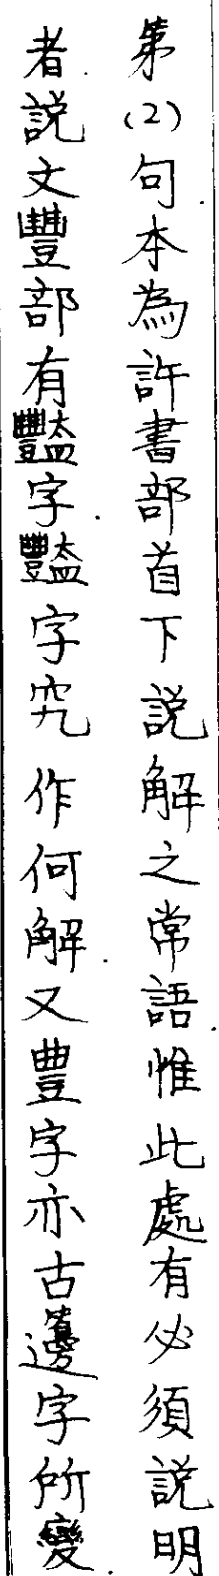 第(2)句本為許書部首下說解之常語.惟此處有必須說明
者.說文豐部有豔字.豔字究作何解.又豊字亦古邊字所變.